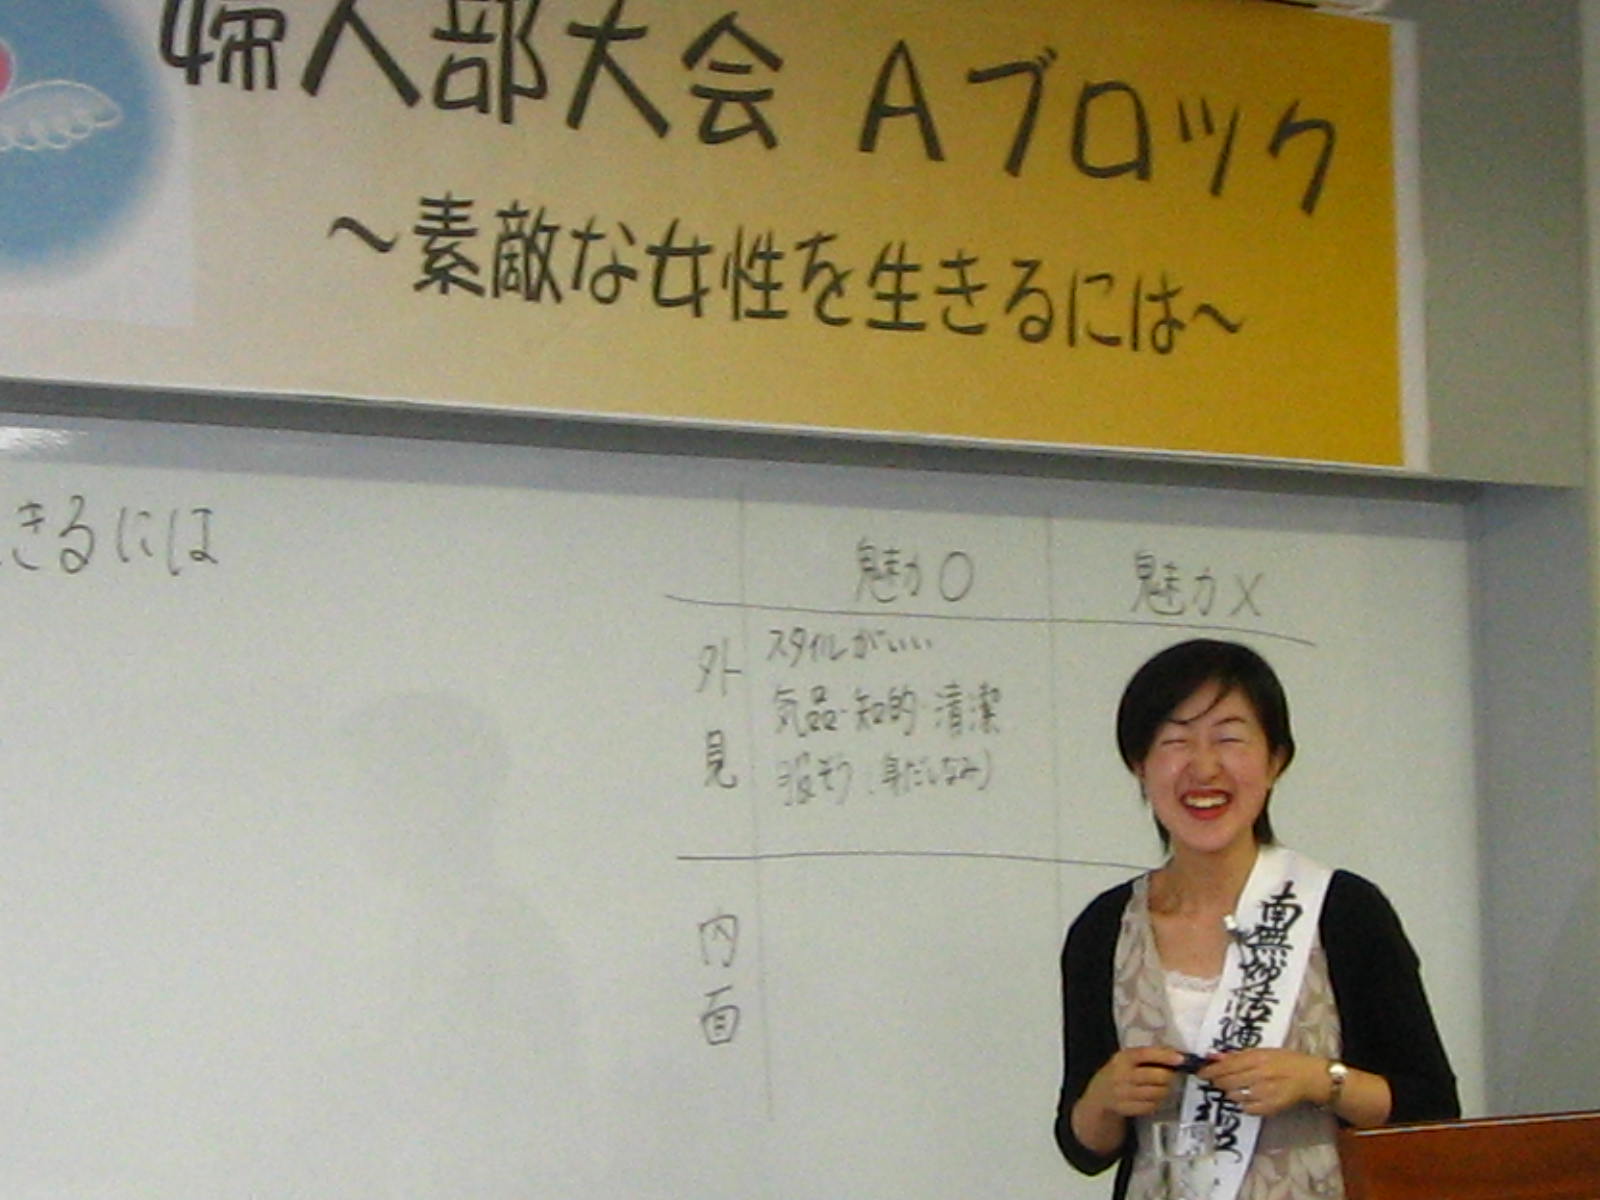 婦人部大会 Aブロック
～素敵な女性を生きるには～
きるには
魅力○ 魅力×
外見
スタイルがいい
気品・知的・清潔
服そう(身だしなみ)
内面
南無妙法蓮